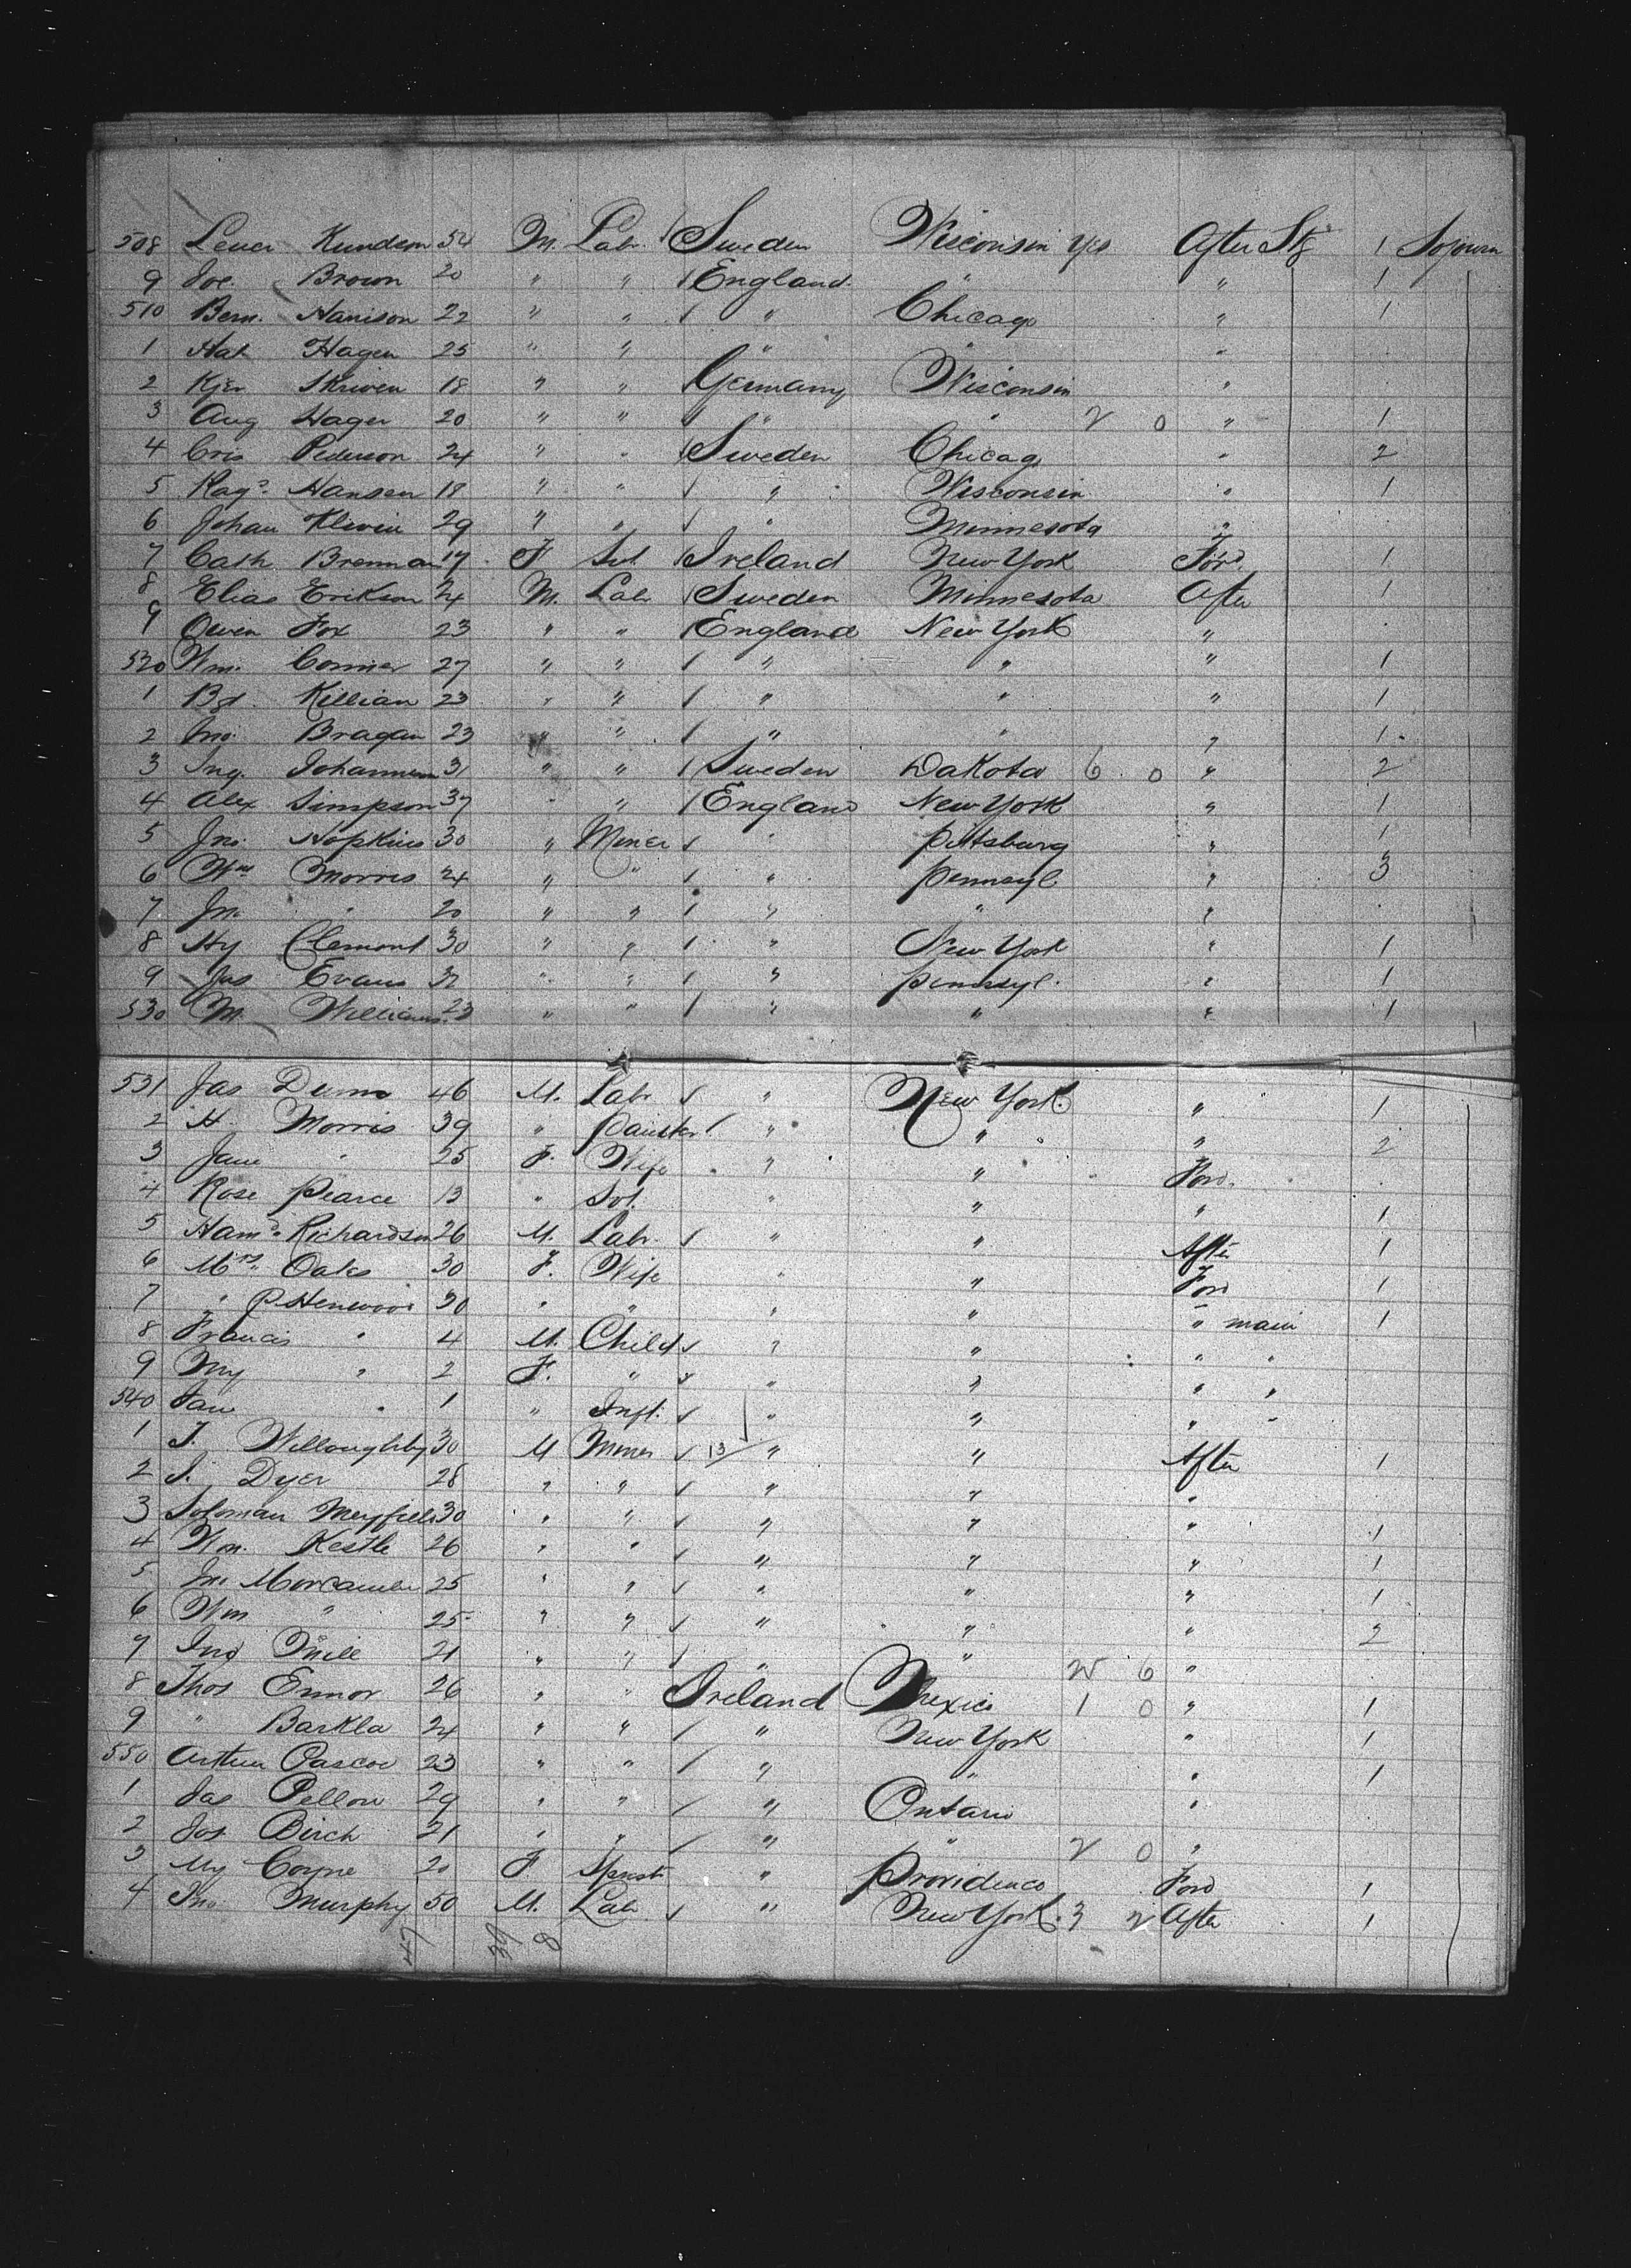 508 Lever Kundson 54 M. Labr. / Sweden Wisconsin Yes After Stg 1 Sojourn
9 Joe. Brown 20 " " / England " " 1
510 Bern. Harrison 22 " " / " Chicago " 1
1 Nat Hagen 25 " " " " "
2 Kjer Skriven 18 " " / Germany Wisconsin "
3 Aug Hager 20 " " / " " 2 0 " 1
4 Cris Pederson 24 " " / Sweden Chicago " 2
5 Rag. Hansen 18 " " / " Wisconsin " 1
6 Johan Klevin 29 " " / " Minnesota "
7 Cath Brennan 19 F / Ireland New York Ford. 1
8 Elias Erikson 24 M. Labr / Sweden Minnesota After 1
9 Owen Fox 23 " " / England New York "
520 Wm. Connier 27 " " / " " " 1
1 Bd. Killian 23 " " / " " " 1
2 Jno. Bragan 23 " " / " " " 1
3 Ing. Johannson 31 " " / Sweden Dakota 6 0 " 2
4 Alex Simpson 37 " " / England New York " 1
5 Jno. Hopkins 30 " Miner / " Pittsburg " 1
6 Wm Morris 24 " " / " Pennsyl " 3
7 Jn. " 20 " " / " " "
8 Hy Clemont 30 " " / " New York " 1
9 Jas Evans 32 " " / " Pennsyl. " 1
530 M. Williams 23 " " / " " " 1
531 Jas Dunn 46 M. Labr / " New York. " 1
2 H. Morris 39 " Painter / " " " 2
3 Jane " 25 F. Wife " " Ford.
4 Rose Pearce 13 " " " " 1
5 Richardson 26 M. Labr. / " " After 1
6 Mrs. Oates 30 F. Wife " " Ford 1
7 " P Henwood 30 " " " " " main 1
8 Francis " 4 M. Child / " " " "
9 My " 2 F. " / " " " "
540 Jane " 1 " Inft. / " " " "
1 J. Willoughby 30 M Miner / 13/ " " After 1
2 J. Dyer 28 " " / " " "
3 Soloman Meyfield 30 " " / " " " 1
4 Wm. Kestle 26 " " / " " " 1
5 Jno Morcambe 25 " " / " " " 1
6 Wm " 25 " " / " " " 2
7 Jno 21 " " / " " 2 6 "
8 Thos Ennor 26 " " Ireland Mexico 1 0 " 1
9 " Barkla 24 " " / " New York " 1
550 Arthur Pascoe 23 " " / " " " 1
1 Jas Pellow 29 " " / " Ontario "
2 Jos Birch 21 " " / " " 2 0 "
3 My Coyne 20 F Spinst " Providence Ford 1
4 Jno Murphy 50 M. Labr / " New York. 3 2 After 1
47 39 8